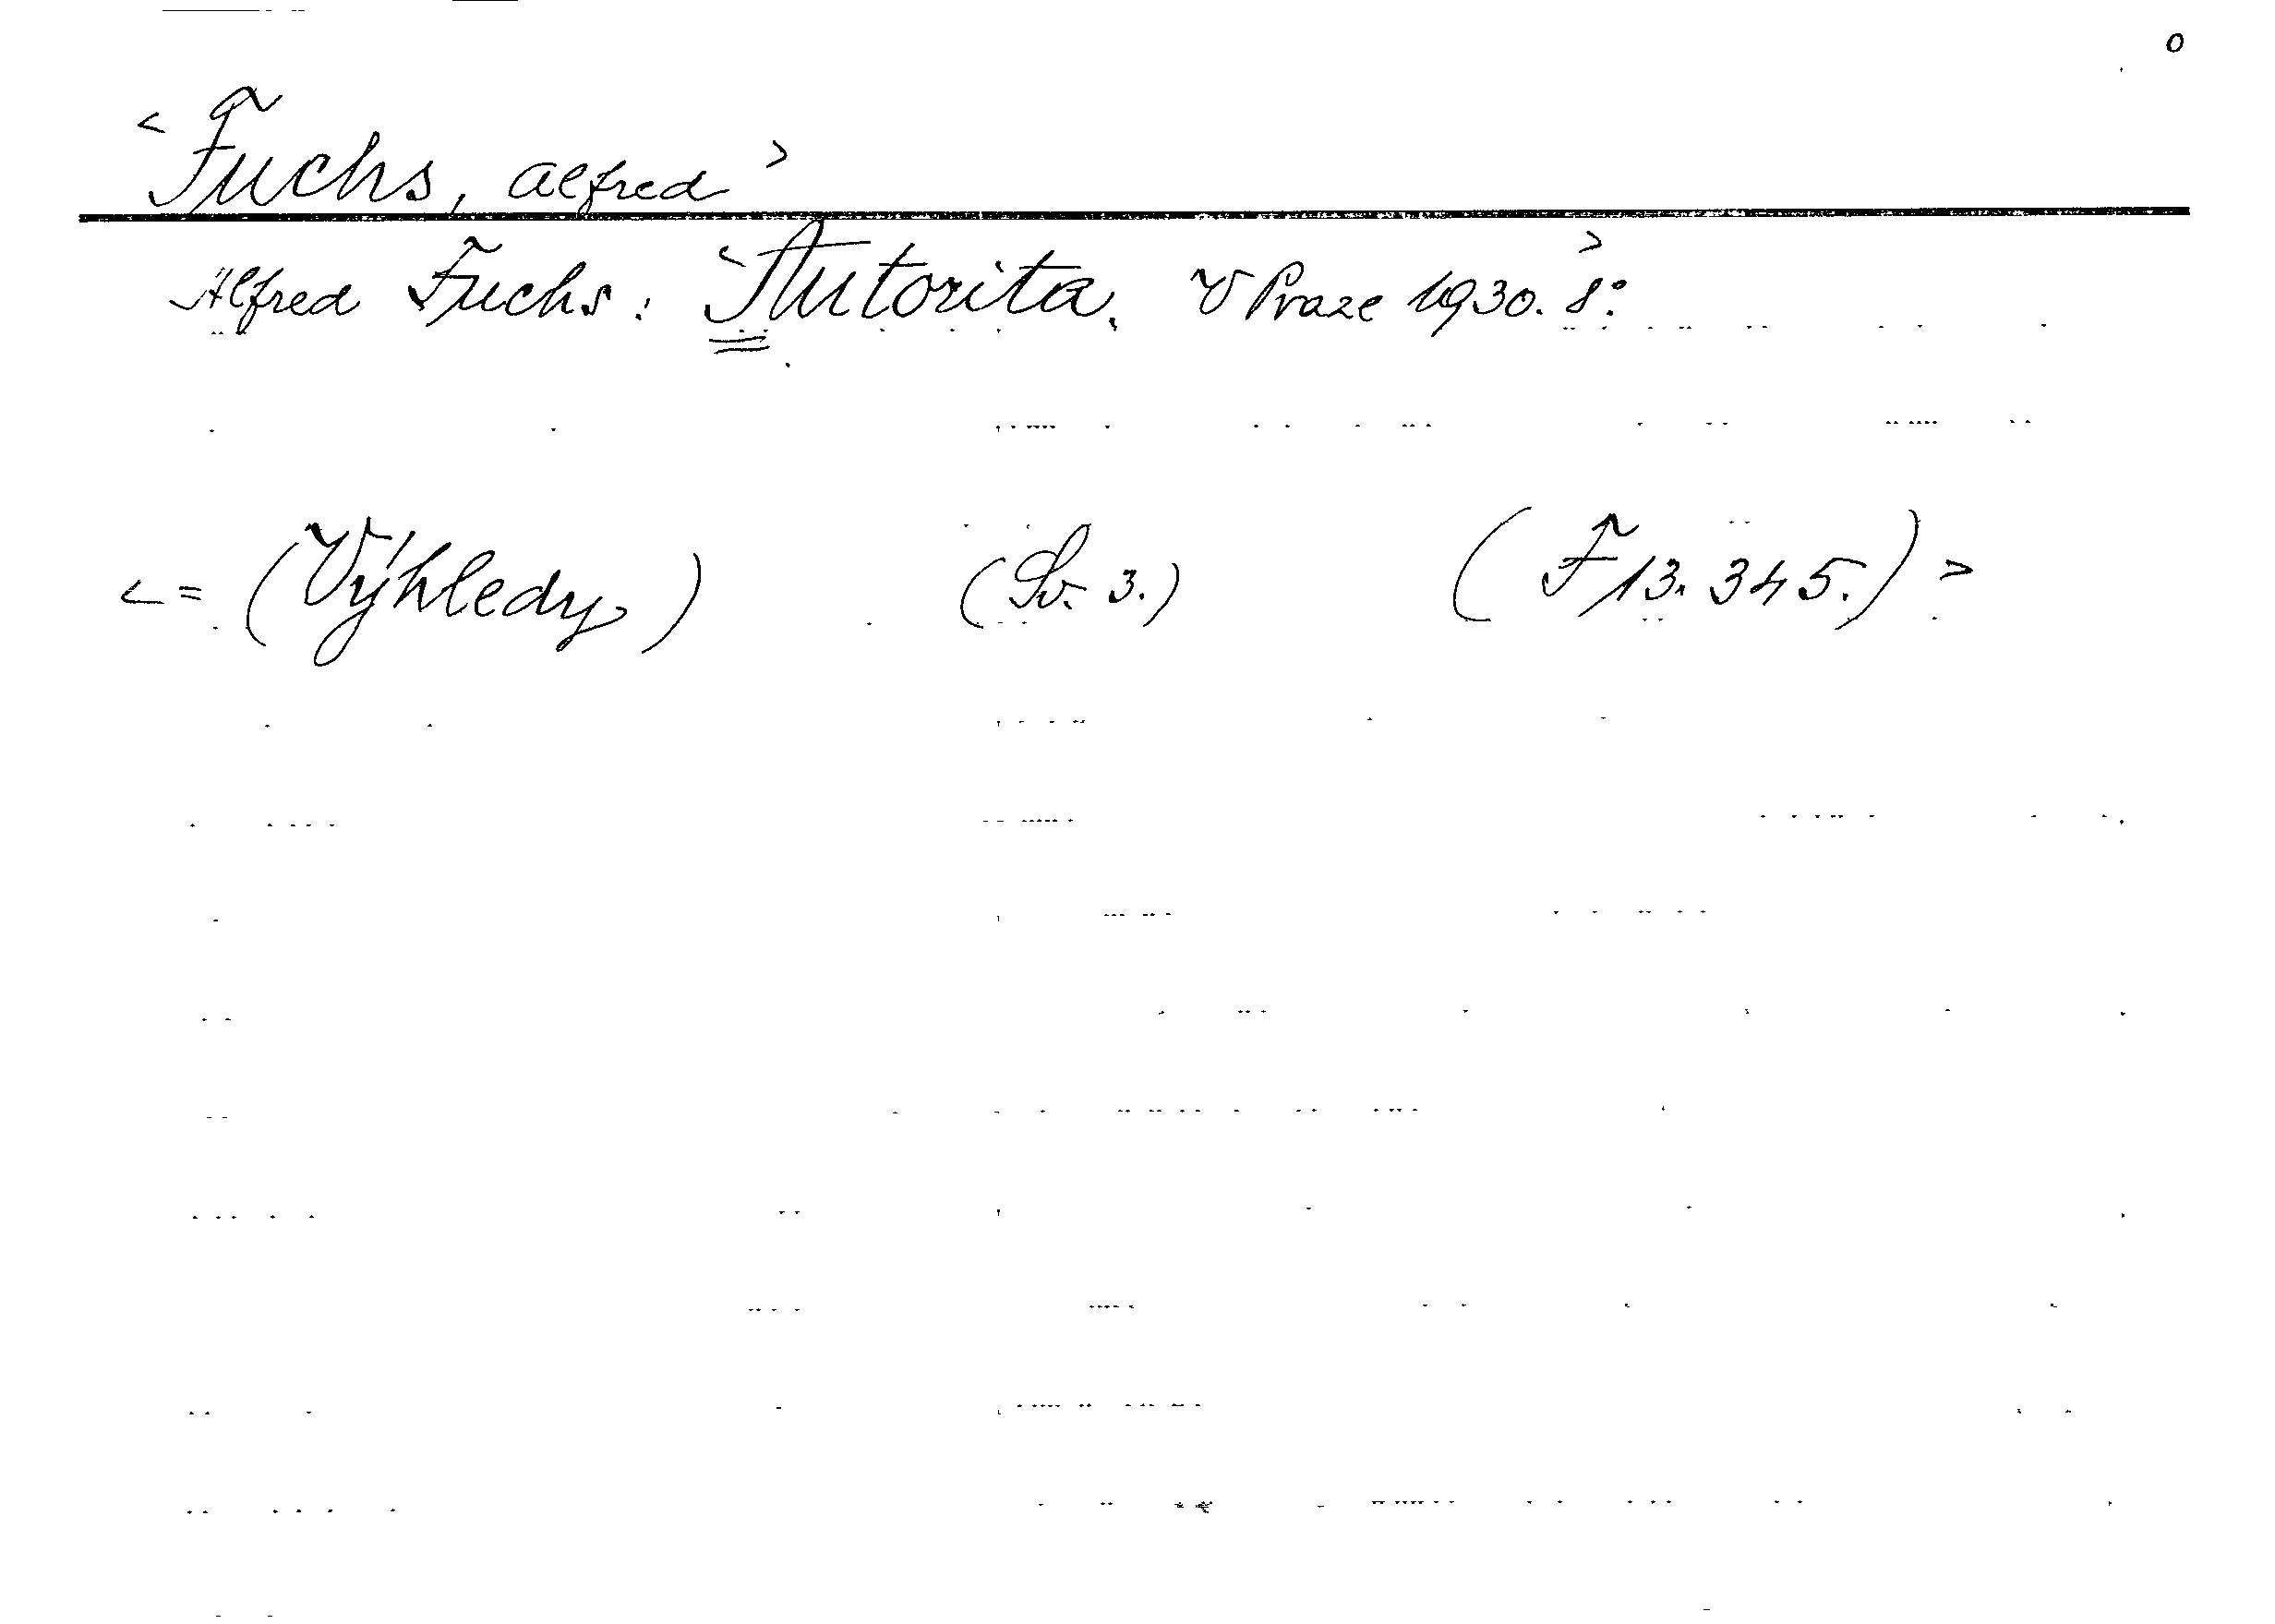 o
< Fuchs, Alfred >
Alfred Fuchs: < Autorita. V Praze 1930. 8° >
< = (Výhledy.) (Sv. 3.) (F 13.345.) >